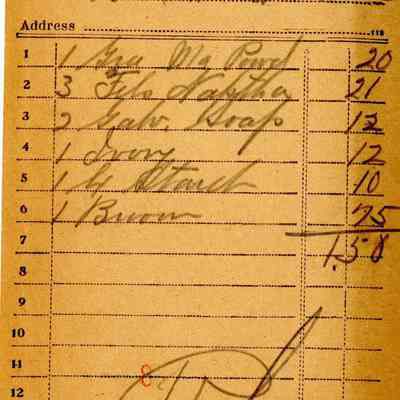 Address
1 1 Powd 20
2 3 Fels Naptha 21
3 2 Soap 12
4 1 Ivory 12
5 1 Starch 10
6 1 Broom 75
7 1.50
8
9
10
11 8
12